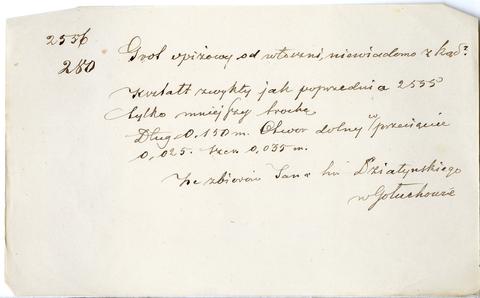 2556
280
Grot spiżowy od włóczni, niewiadomo z kąd?
Kształt zwykły jak poprzednia 2555
tylko mniejszy trochę
Dług 0,150 m. Otwór dolny w przecięcie
0,025. Szer 0,035 m.
Ze zbiorów Jana hr Działyńskiego
w Gołuchowie